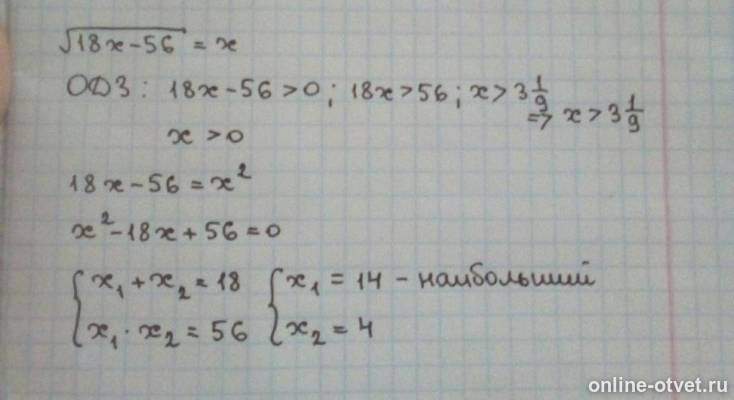 √18x-56 = x
ОДЗ: 18x-56>0; 18x>56; x>3 1/9
⇒ x>3 1/9
x >0
18x-56=x²
x²-18x+56=0
{ x₁+x₂=18 { x₁=14 - наибольший
{ x₁·x₂=56 { x₂=4
online-otvet.ru